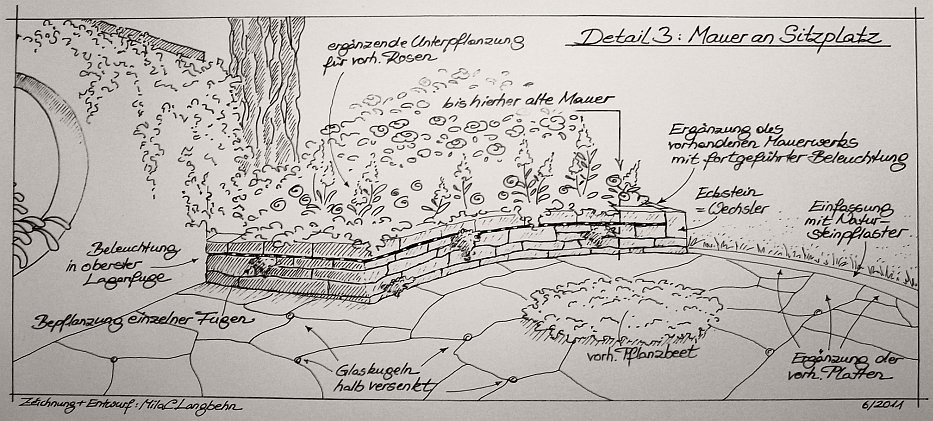 Detail 3: Mauer an Sitzplatz
ergänzende Unterpflanzung
für vorh. Rosen
bis hierher alte Mauer
Ergänzung des
vorhandenen Mauerwerks
mit fortgeführter Beleuchtung
Eckstein
= Wechsler
Einfassung
mit Natur-
steinpflaster
Beleuchtung
in oberster
Lagerfuge
Bepflanzung einzelner Fugen
Glaskugeln
halb versenkt
vorh. Pflanzbeet
Ergänzung der
vorh. Platten
Zeichnung + Entwurf: Mila C. Langbehn
6/2011